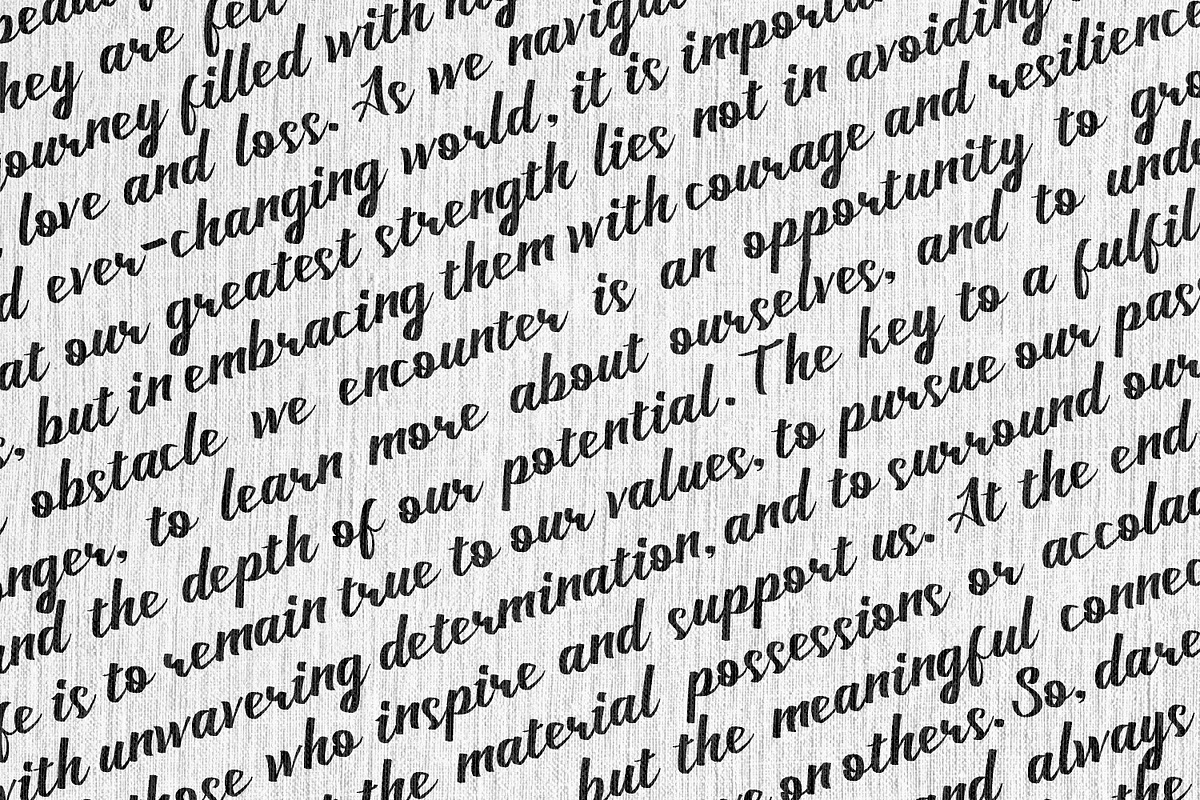 beau
hey are fel
journey filled with hig
, love and loss. As we naviga
d ever-changing world, it is importa
at our greatest strength lies not in avoiding
s, but in embracing them with courage and resilience
obstacle we encounter is an opportunity to gro
onger, to learn more about ourselves, and to unde
and the depth of our potential. The key to a fulfil
fe is to remain true to our values, to pursue our pass
with unwavering determination, and to surround our
those who inspire and support us. At the end
the material possessions or accolad
but the meaningful connec
on others. So, dare
and always
the